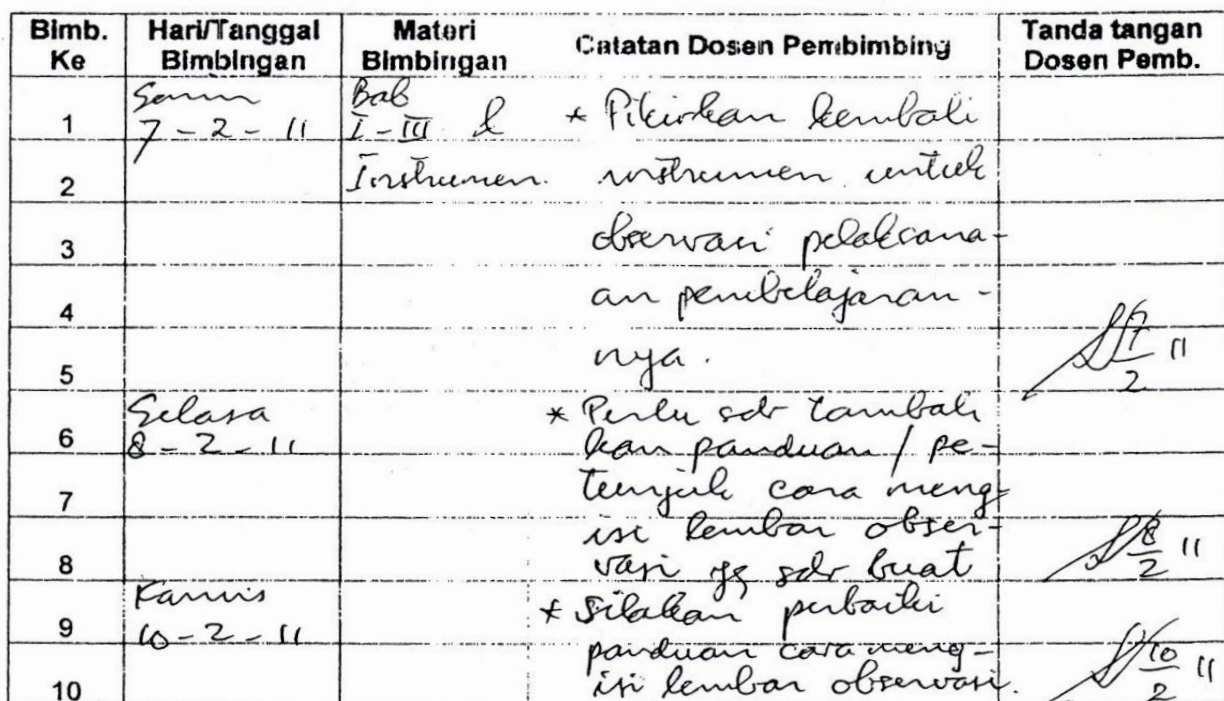 Bimb. Ke Hari/Tanggal Bimbingan Materi Bimbingan Catatan Dosen Pembimbing Tanda tangan Dosen Pemb.
1 Senin 7 - 2 - 11 Bab I - III & * Pikirkan kembali
2 Instrumen. instrumen untuk
3 observasi pelaksana-
4 an pembelajaran-
5 nya. 7/2 11
6 Selasa 8 - 2 - 11 * Perlu sdr tambah
kan panduan / pe-
7 tunjuk cara meng-
isi lembar obser-
8 vasi yg sdr buat 8/2 11
9 Kamis 10 - 2 - 11 * Silakan perbaiki
panduan cara meng-
10 isi lembar observasi. 10/2 11